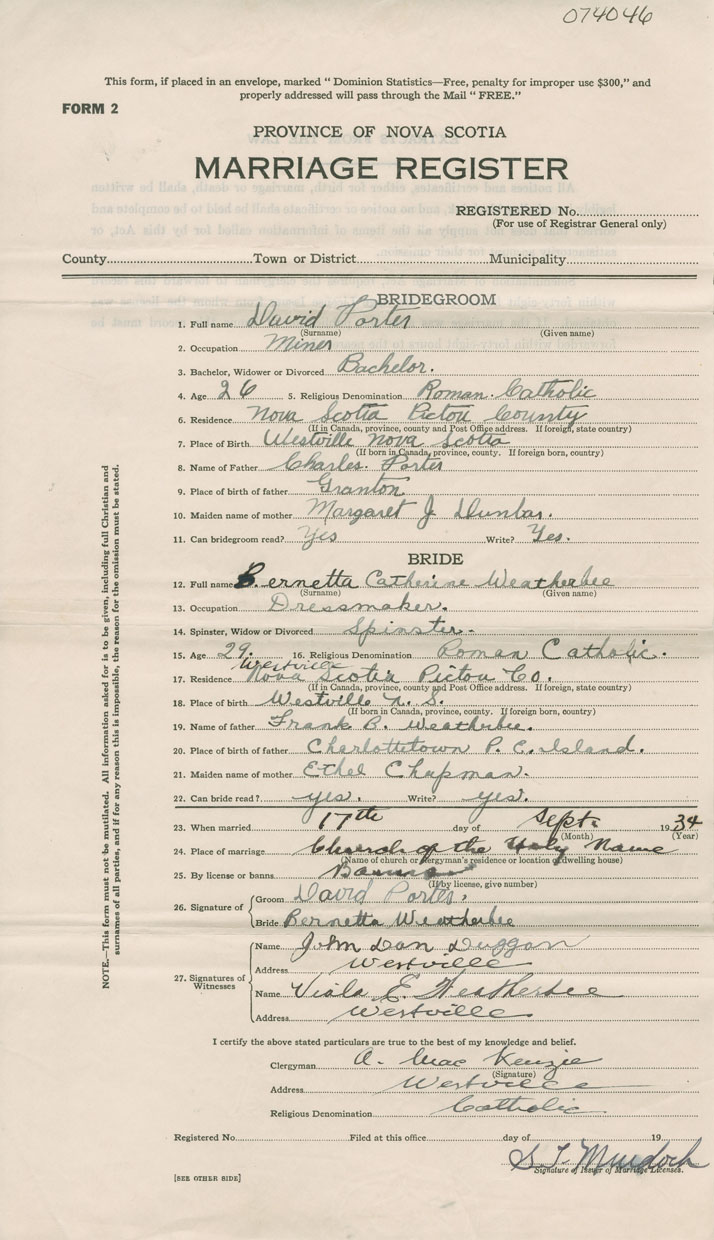 074046
This form, if placed in an envelope, marked "Dominion Statistics—Free, penalty for improper use $300," and
properly addressed will pass through the Mail "FREE."
FORM 2
PROVINCE OF NOVA SCOTIA
MARRIAGE REGISTER
REGISTERED No.
(For use of Registrar General only)
County Town or District Municipality
BRIDEGROOM
1. Full name David Porter
(Surname) (Given name)
2. Occupation Miner
3. Bachelor, Widower or Divorced Bachelor.
4. Age 26 5. Religious Denomination Roman Catholic
6. Residence Nova Scotia Pictou County
(If in Canada, province, county and Post Office address. If foreign, state country)
7. Place of Birth Westville Nova Scotia
(If born in Canada, province, county. If foreign born, country)
8. Name of Father Charles Porter
9. Place of birth of father Granton
10. Maiden name of mother Margaret J Dunbar.
11. Can bridegroom read? Yes Write? Yes.
BRIDE
12. Full name Bernetta Catherine Weatherbee
(Surname) (Given name)
13. Occupation Dressmaker.
14. Spinster, Widow or Divorced Spinster.
15. Age 29. 16. Religious Denomination Roman Catholic.
Westville
17. Residence Nova Scotia Pictou Co.
(If in Canada, province, county and Post Office address. If foreign, state country)
18. Place of birth Westville N. S.
(If born in Canada, province, county. If foreign born, country)
19. Name of father Frank B. Weatherbee.
20. Place of birth of father Charlottetown P. E. Island.
21. Maiden name of mother Ethel Chapman.
22. Can bride read? yes. Write? yes.
23. When married 17th day of Sept. 1934
(Month) (Year)
24. Place of marriage Church of the Holy Name
(Name of church or clergyman's residence or location of dwelling house)
25. By license or banns Banns
(If by license, give number)
26. Signature of
Groom David Porter,
Bride Bernetta Weatherbee
27. Signatures of Witnesses
Name John Dan Duggan
Address Westville
Name Viola E. Weatherbee
Address Westville
I certify the above stated particulars are true to the best of my knowledge and belief.
Clergyman A. MacKenzie
(Signature)
Address Westville
Religious Denomination Catholic
Registered No. Filed at this office day of 19
S. T. Murdoch
Signature of Issuer of Marriage Licenses.
[SEE OTHER SIDE]
NOTE.—This form must not be mutilated. All information asked for is to be given, including full Christian and
surnames of all parties, and if for any reason this is impossible, the reason for the omission must be stated.